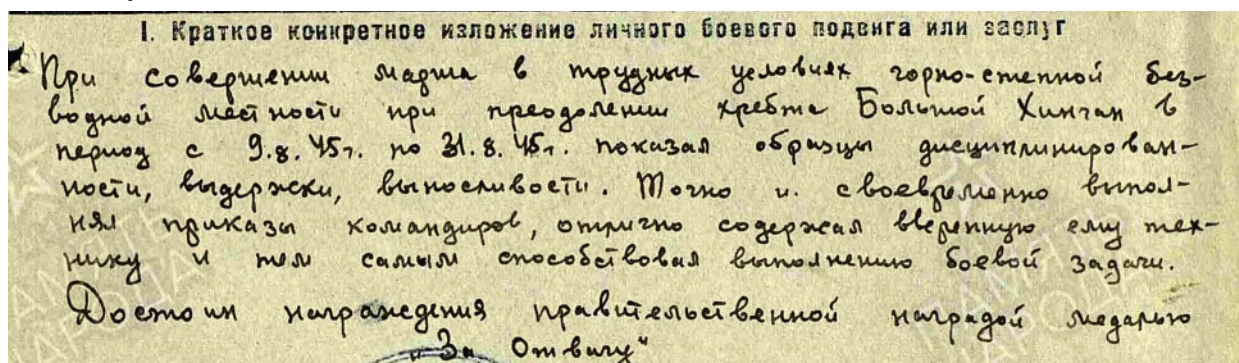 I. Краткое конкретное изложение личного боевого подвига или заслуг
При совершении марша в трудных условиях горно-степной без-
водной местности при преодолении хребта Большой Хинган в
период с 9.8.45г. по 31.8.45г. показал образцы дисциплинирован-
ности, выдержки, выносливости. Точно и своевременно выпол-
нял приказы командиров, отлично содержал вверенную ему тех-
нику и тем самым способствовал выполнению боевой задачи.
Достоин награждения правительственной наградой медалью
„За Отвагу"